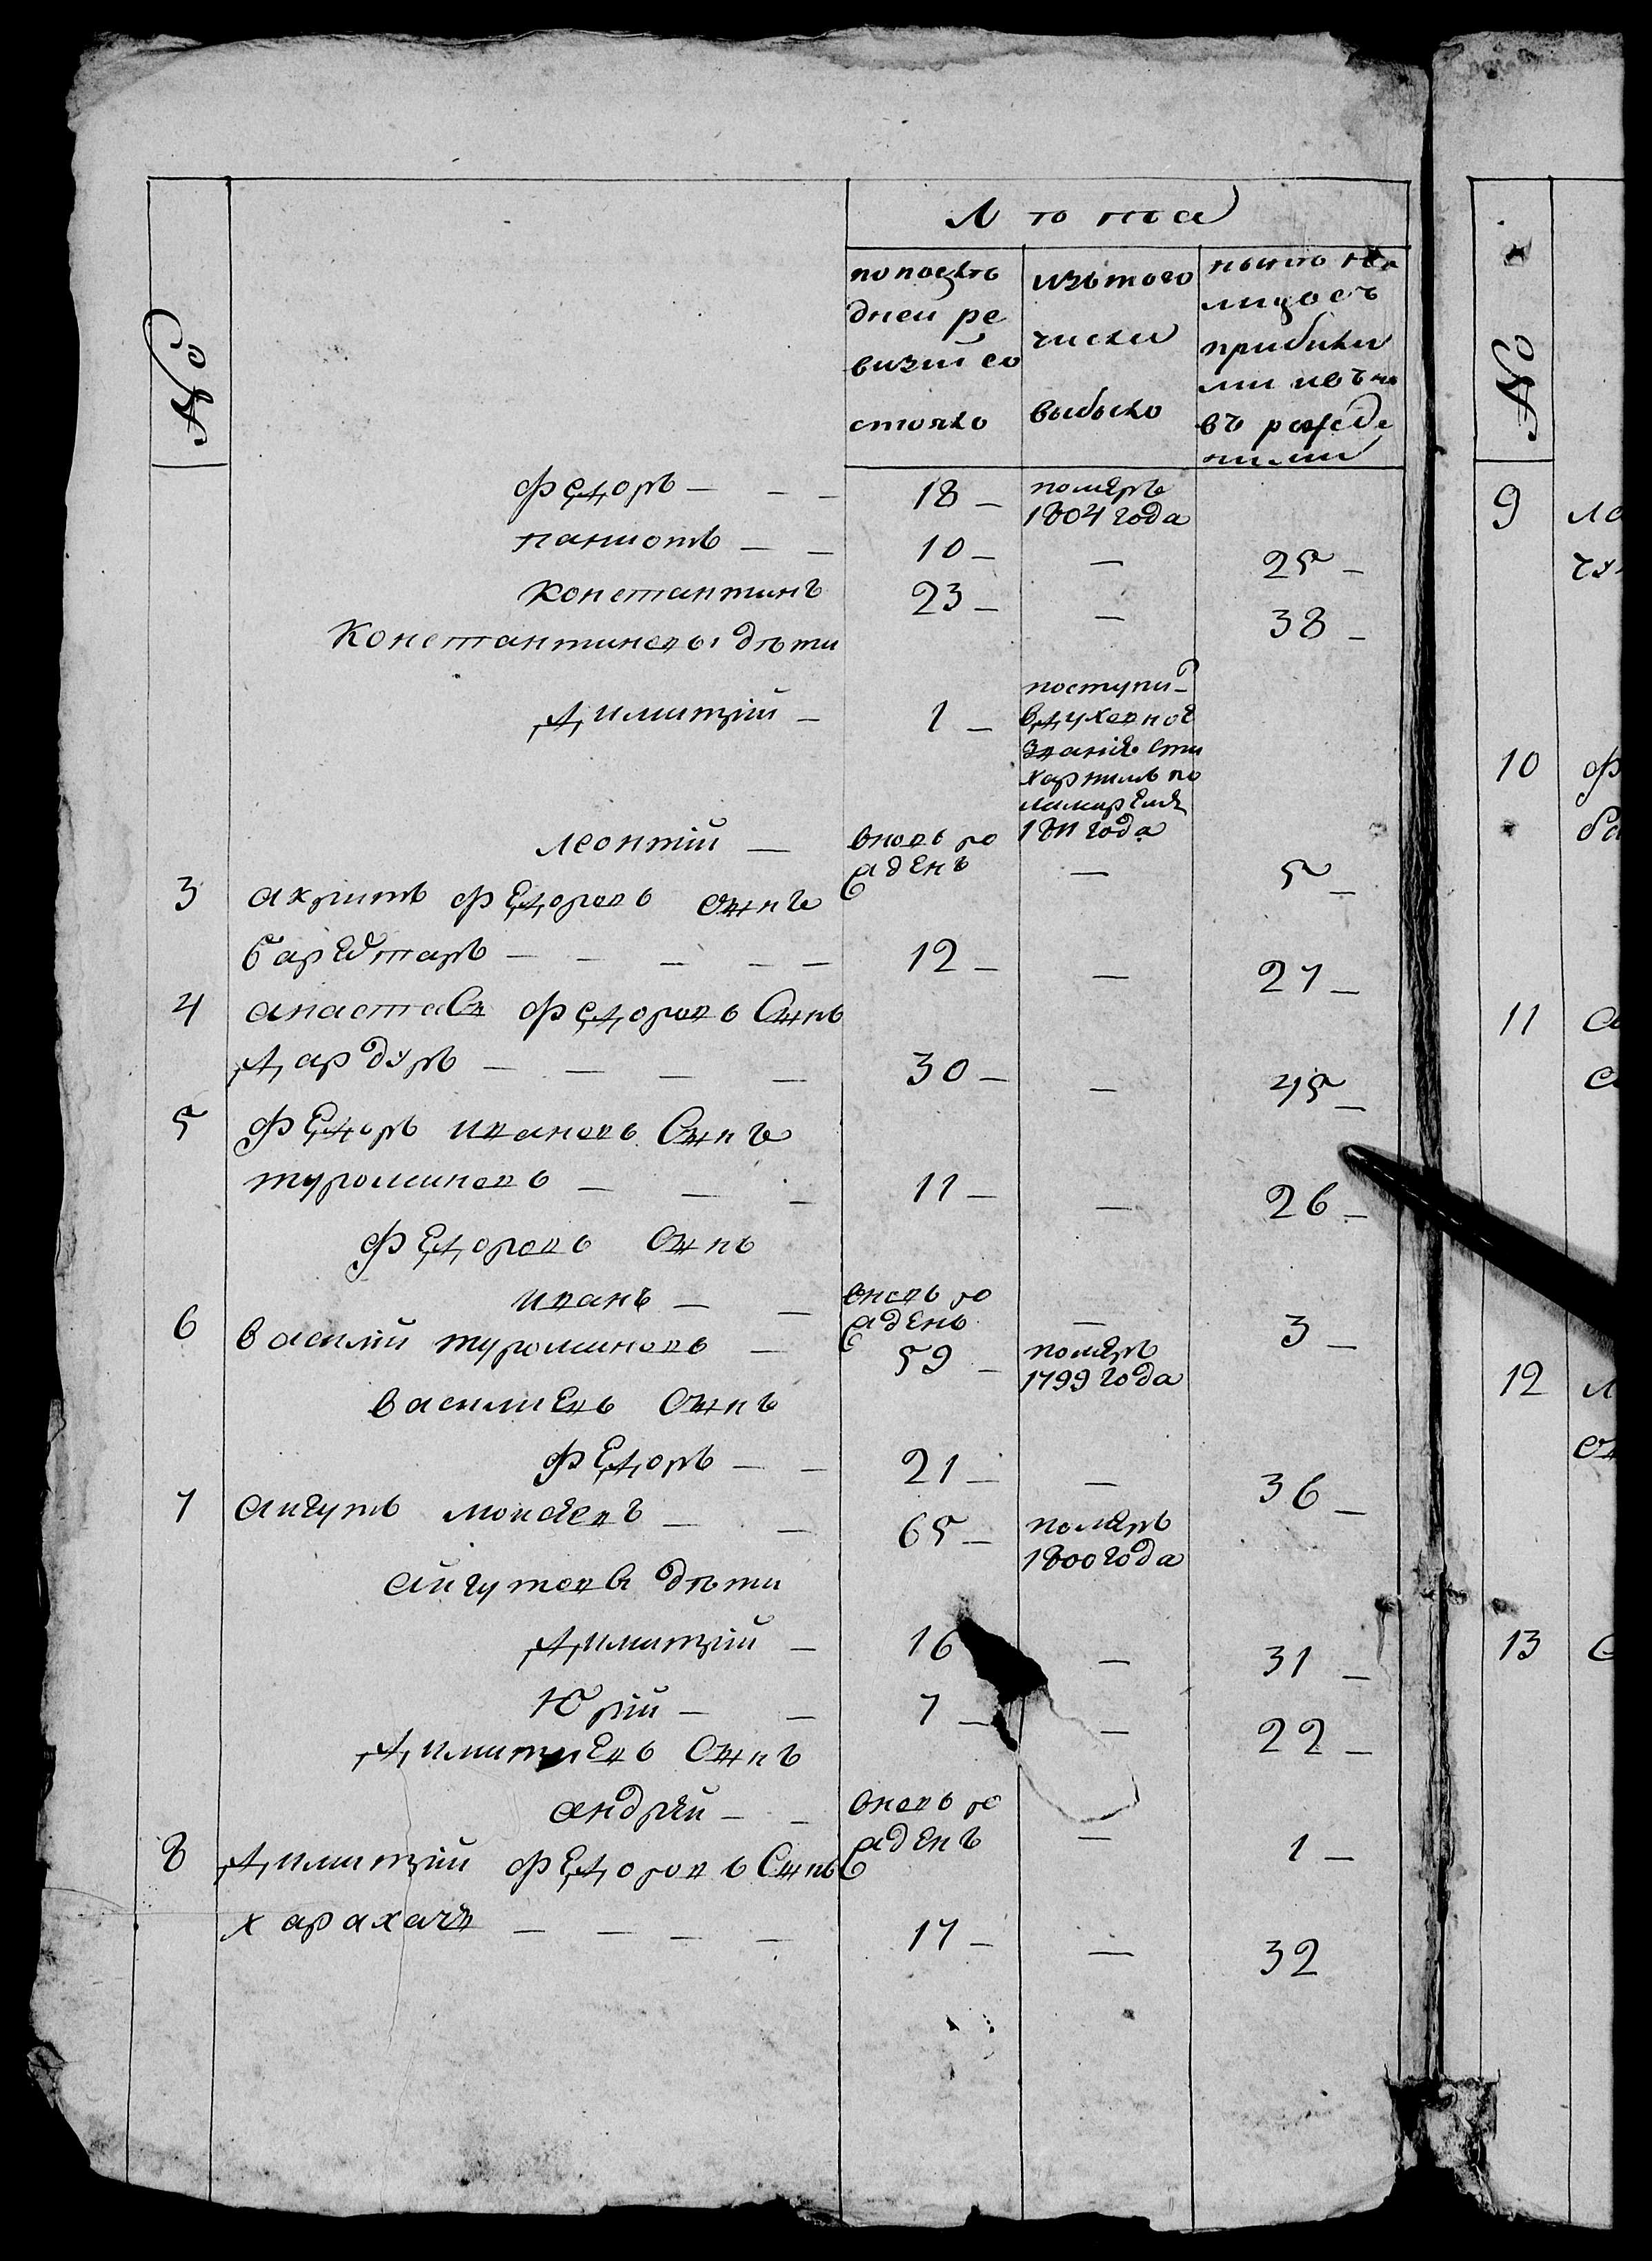 №
Лѣта
по послѣ
дней ре
визiи со
стояло
изътого
числа
выбыло
ныне на
лицо съ
прибылы
ми и въ но
въ рожде
ными
№
федоръ — — — 18 — померъ
1804 года
паниотъ — — 10 — — 25 —
Константинъ 23 — — 38 —
Константиновы дѣти
Димитрiй — 1 — поступи
в духовное
званiе
1811 года
леонтiй — вновь ро
жденъ — 5 —
3 акритъ федоровъ сынъ
бареджаръ — — — — — 12 — — 27 —
4 анастасъ федоровъ Сынъ
Дардуръ — — — — 30 — — 45 —
5 федоръ ивановъ Сынъ
туроминовъ — — — 11 — — 26 —
федоровъ Сынъ
иванъ — — вновь ро
жденъ — 3 —
6 василiй туроминовъ — 59 — померъ
1799 года
василиевъ Сынъ
федоръ — — 21 — — 36 —
7 аигутъ моисеевъ — — 65 — померъ
1800 года
аигутовы дѣти
Димитрiй — 16 — 31 —
Юрiй — — 7 — — 22 —
Димитриевъ Сынъ
андрей — — вновь ро
жденъ — 1 —
8 Димитрiй федоровъ Сынъ
харахачъ — — — — 17 — — 32
9
10
11
12
13